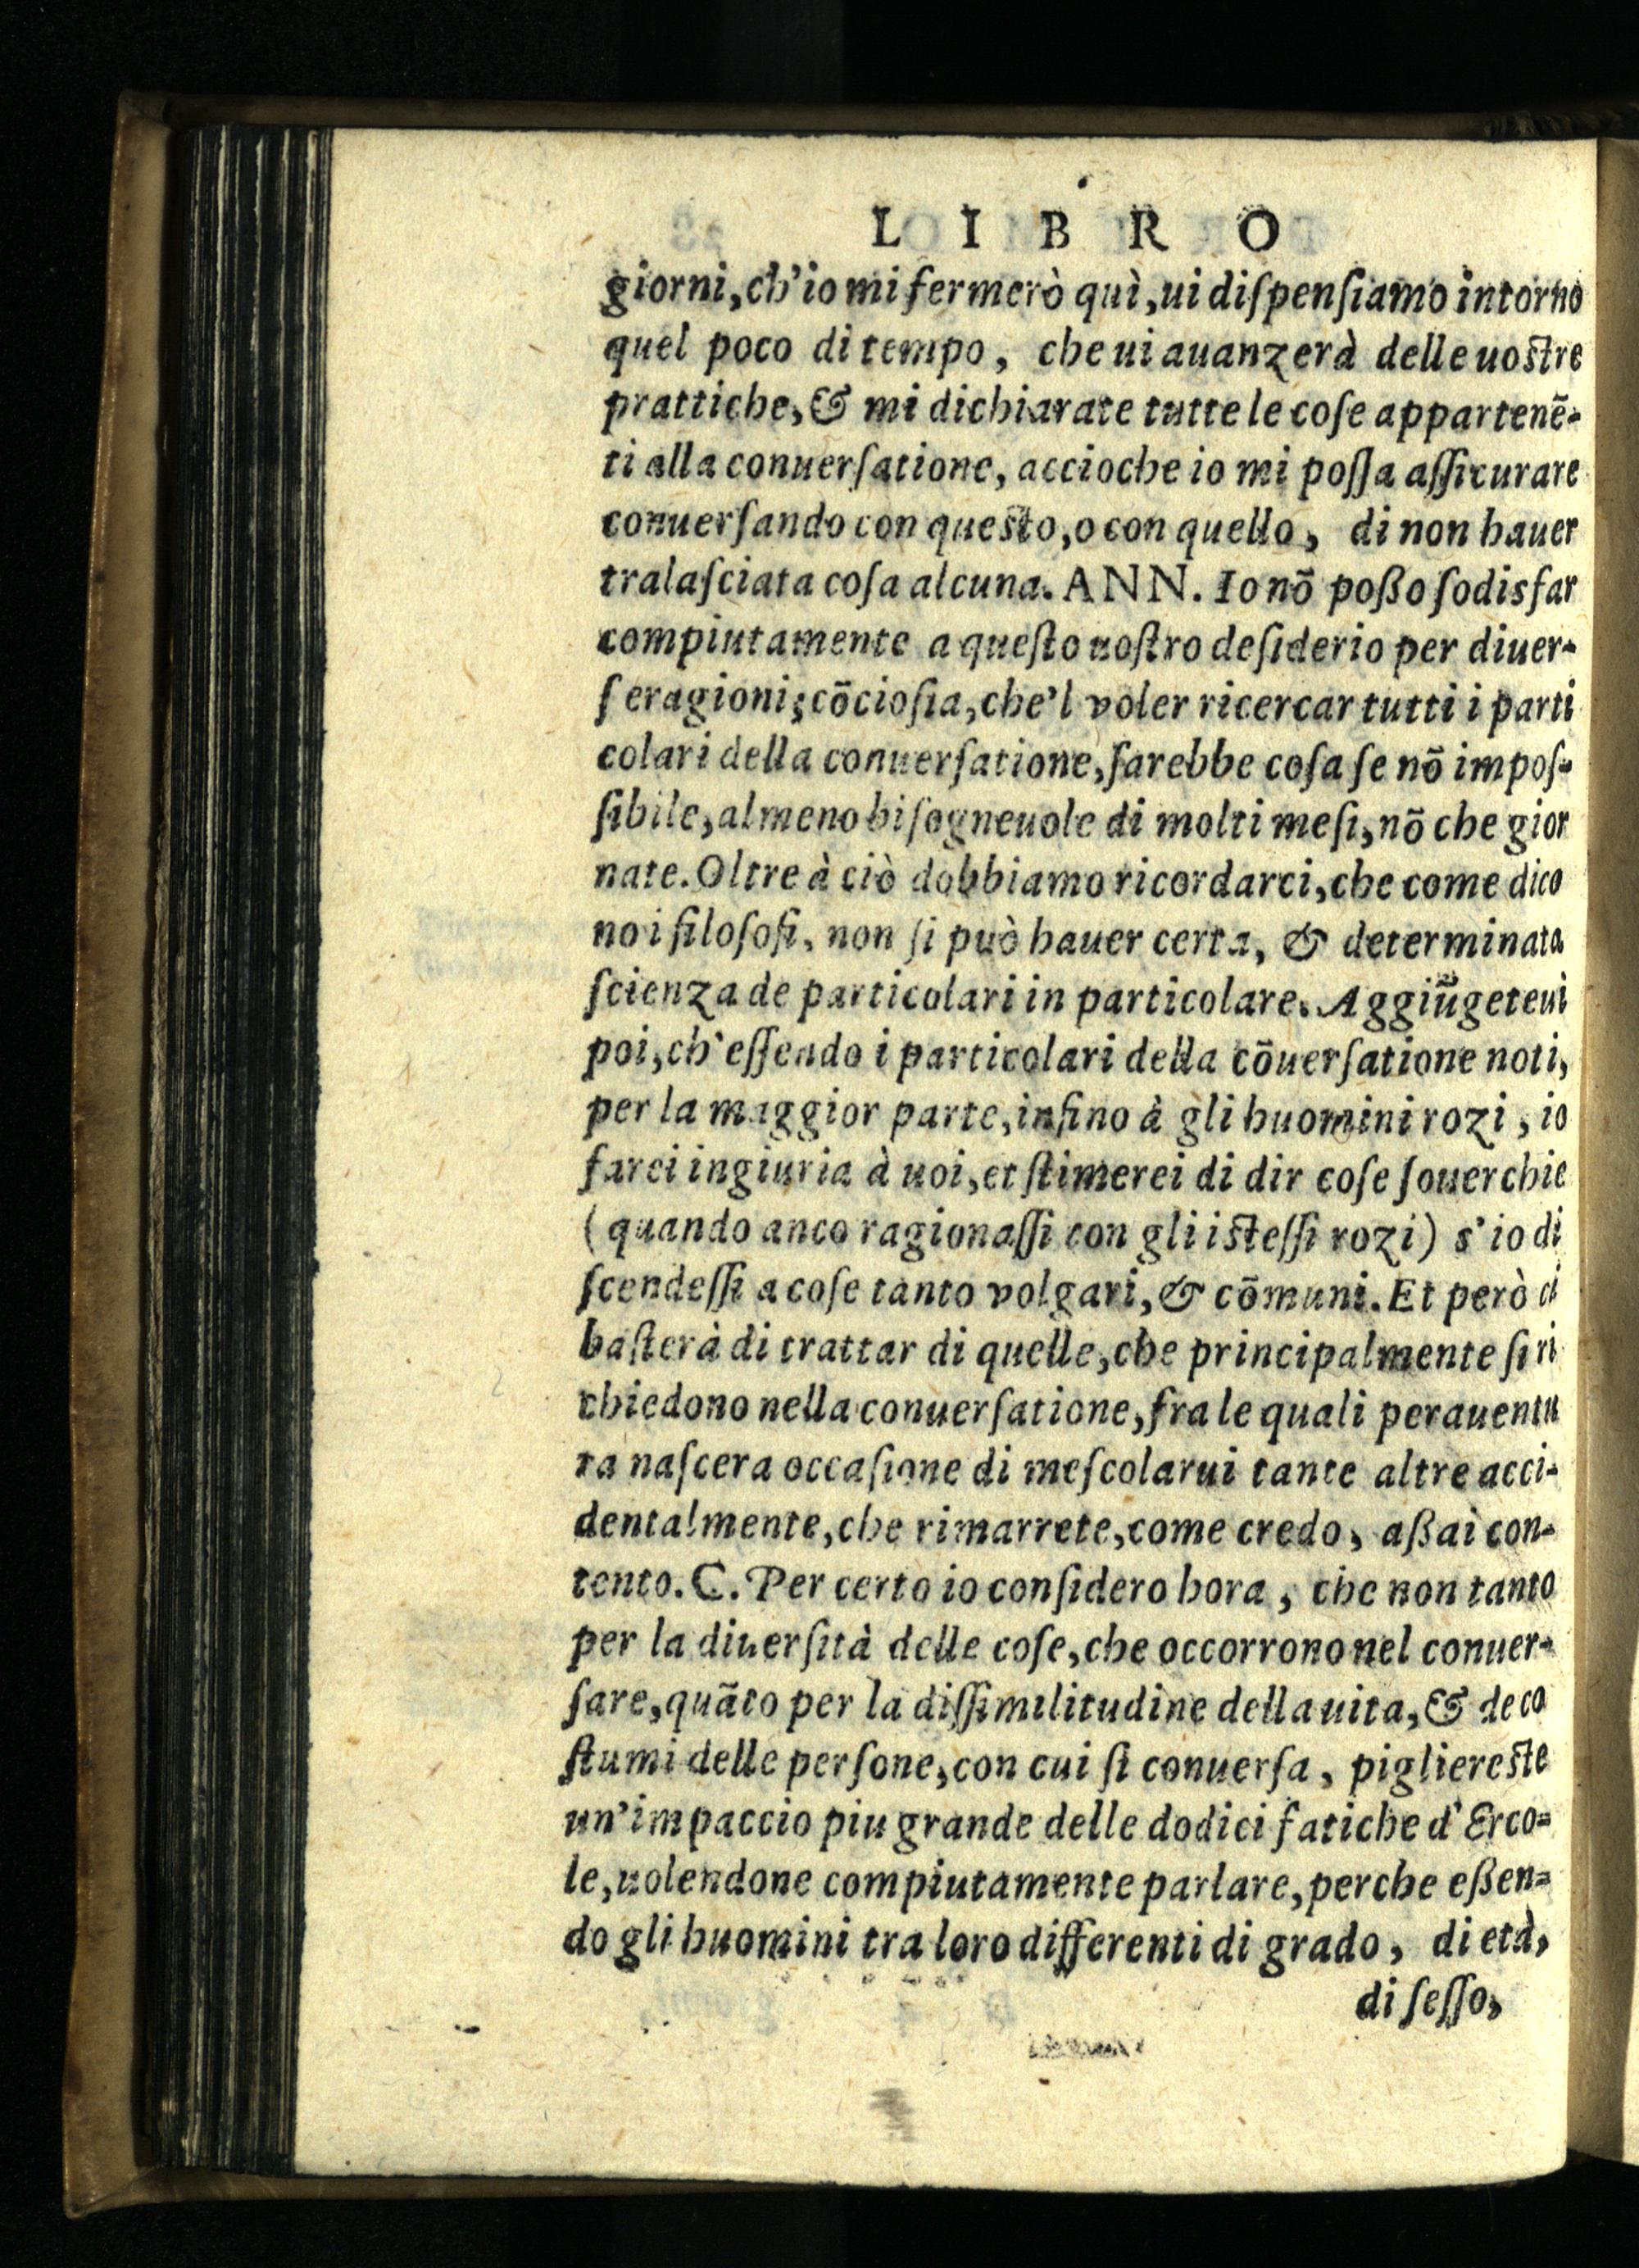 LIBRO
giorni, ch'io mi fermerò quì, ui diſpenſiamo intorno
quel poco di tempo, che ui auanzerà delle uoſtre
prattiche, & mi dichiarate tutte le coſe appartenē-
ti alla conuerſatione, accioche io mi poſſa aſſicurare
conuerſando con queſto, o con quello, di non hauer
tralaſciata coſa alcuna. ANN. Io nō poßo ſodisfar
compiutamente a queſto uoſtro deſiderio per diuer-
ſe ragioni; cōcioſia, che'l voler ricercar tutti i parti
colari della conuerſatione, ſarebbe coſa ſe nō impoſ-
ſibile, almeno biſogneuole di molti meſi, nō che gior
nate. Oltre à ciò dobbiamo ricordarci, che come dico
no i filoſofi, non ſi può hauer certa, & determinata
ſcienza de particolari in particolare. Aggiūgeteui
poi, ch'eſſendo i particolari della cōuerſatione noti,
per la maggior parte, infino à gli huomini rozi, io
farei ingiuria à uoi, et ſtimerei di dir coſe ſouerchie
(quando anco ragionaſſi con gli iſteſſi rozi) s'io di
ſcendeſſi a coſe tanto volgari, & cōmuni. Et però ci
baſterà di trattar di quelle, che principalmente ſi ri
chiedono nella conuerſatione, fra le quali perauentu
ra naſcera occaſione di meſcolarui tante altre acci-
dentalmente, che rimarrete, come credo, aßai con-
tento. C. Per certo io conſidero hora, che non tanto
per la diuerſità delle coſe, che occorrono nel conuer-
ſare, quāto per la diſſimilitudine della uita, & de co
ſtumi delle perſone, con cui ſi conuerſa, pigliereſte
un'impaccio piu grande delle dodici fatiche d'Erco-
le, uolendone compiutamente parlare, perche eßen-
do gli huomini tra loro differenti di grado, di età,
di ſeſſo,